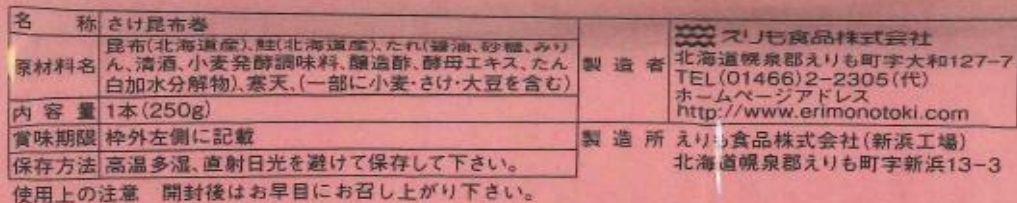 名称 さけ昆布巻
原材料名 昆布(北海道産)、鮭(北海道産)、たれ(醤油、砂糖、みり
ん、清酒、小麦発酵調味料、醸造酢、酵母エキス、たん
白加水分解物)、寒天、(一部に小麦・さけ・大豆を含む)
内容量 1本(250g)
賞味期限 枠外左側に記載
保存方法 高温多湿、直射日光を避けて保存して下さい。
使用上の注意 開封後はお早目にお召し上がり下さい。
製造者 えりも食品株式会社
北海道幌泉郡えりも町字大和127-7
TEL(01466)2-2305(代)
ホームページアドレス
http://www.erimonotoki.com
製造所 えりも食品株式会社(新浜工場)
北海道幌泉郡えりも町字新浜13-3